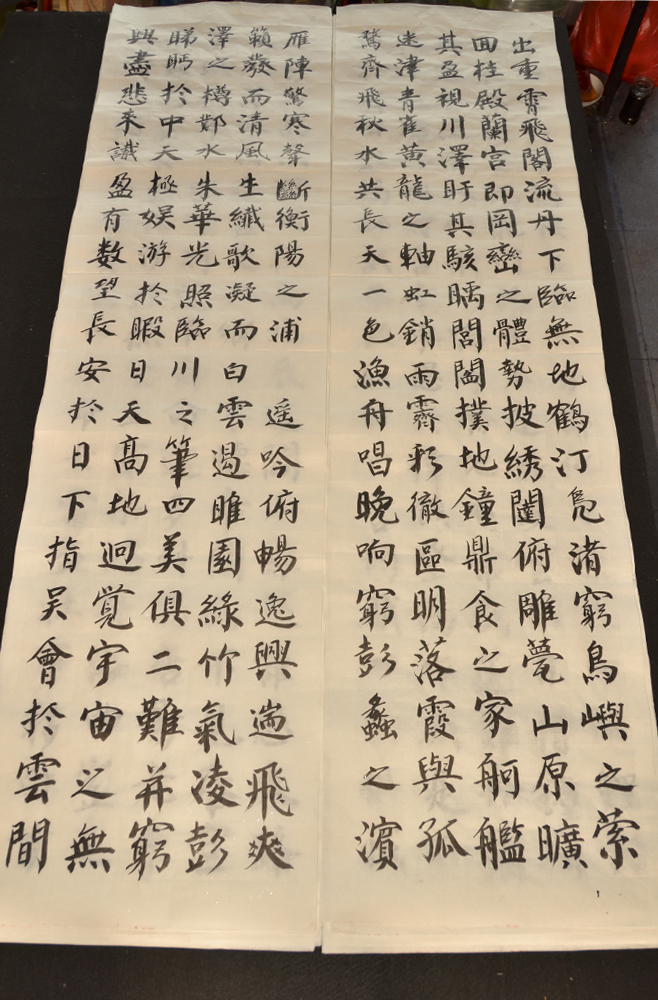 出重霄飛閣流丹下臨無地鶴汀鳧渚窮鳥嶼之萦
回桂殿蘭宮即岡巒之體勢披綉闥俯雕甍山原曠
其盈視川澤盱其駭矚閭閻撲地鐘鼎食之家舸艦
迷津青雀黃龍之軸虹銷雨霽彩徹區明落霞與孤
鶩齊飛秋水共長天一色漁舟唱晚响窮彭蠡之濱
雁陣驚寒聲斷衡陽之浦 遥吟俯暢逸興遄飛爽
籟發而清風生纖歌凝而白雲遏睢園綠竹氣凌彭
澤之樽鄴水朱華光照臨川之筆四美俱二難并窮
睇眄於中天極娛游於暇日天高地迥覚宇宙之無
興盡悲來識盈有数望長安於日下指吴會於雲間